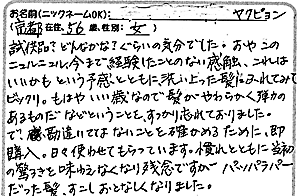 お名前(ニックネームOK): ヤクピョン
(京都在住, 56歳, 性別: 女)
試供品?どんなかな?ぐらいの気分でした。おやこの
ニュルニュル、今まで経験したことのない感触、これは
いいかもという予感とともに洗い上った髪にふれてみて
ビックリ。もはやいい歳なので髪がやわらかく弾力の
あるものだなどということを、すっかり忘れておりました。
で、勘違いではないことを確かめるために、即
購入。日々使わせてもらっています。慣れとともに当初
の驚きを味わえなくなり残念ですが パッパラパー
だった髪、すこしおとなしくなりました。